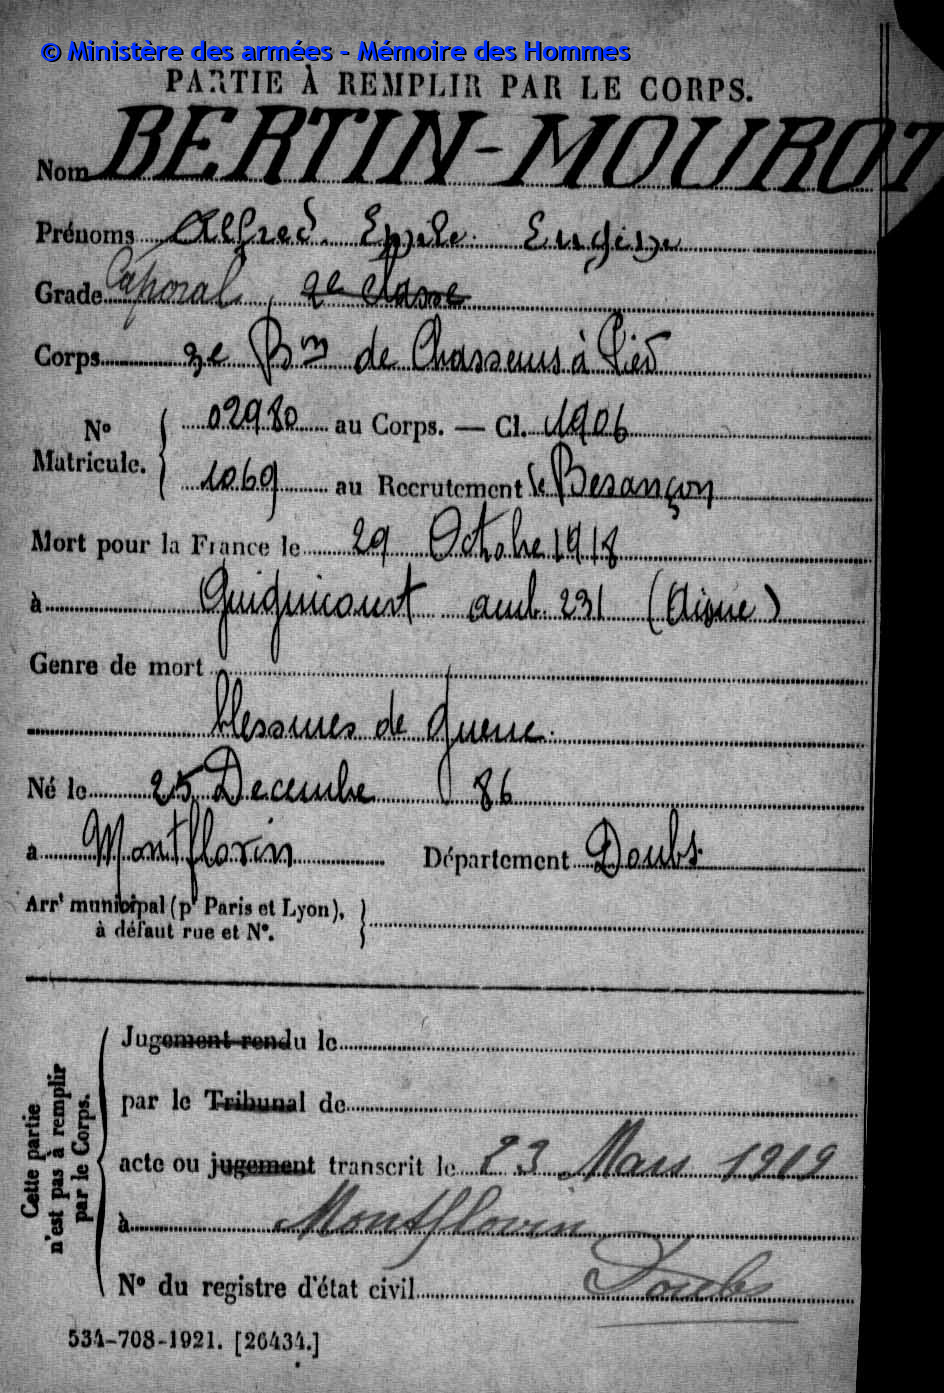 © Ministère des armées - Mémoire des Hommes
PARTIE À REMPLIR PAR LE CORPS.
Nom BERTIN-MOUROT
Prénoms Alfred Emile Eugène
Grade Caporal, 2e classe
Corps 3e Bon de Chasseurs à Pied
No Matricule. { 02980 au Corps. — Cl. 1906
1069 au Recrutement Besançon
Mort pour la France le 29 Octobre 1918
à Guignicourt amb. 231 (Aisne)
Genre de mort
blessures de guerre.
Né le 25 Decembre 86
à Montflovin Département Doubs.
Arrt municipal (pr Paris et Lyon),
à défaut rue et No.
Cette partie n'est pas à remplir par le Corps.
Jugement rendu le
par le Tribunal de
acte ou jugement transcrit le 23 Mars 1919
à Montflovin
No du registre d'état civil Doubs
534-708-1921. [26434.]